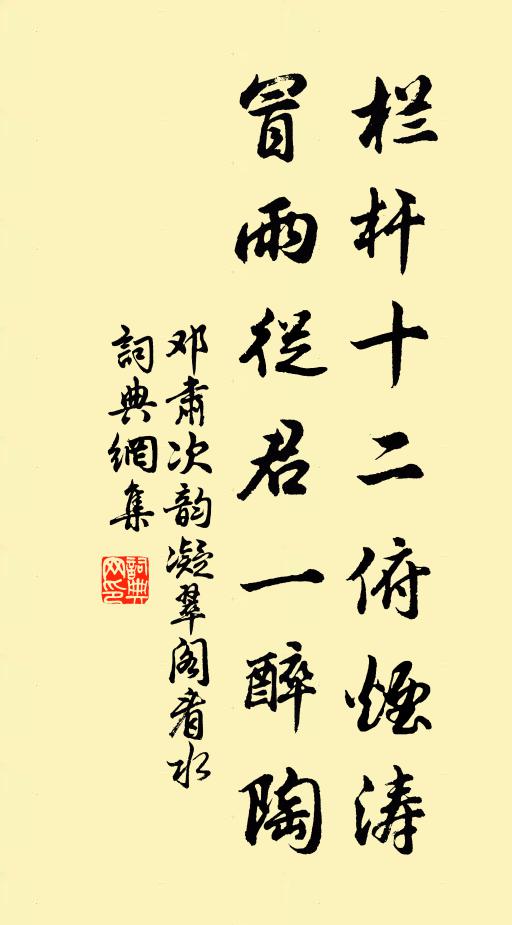 栏杆十二俯煙涛
冒雨從君一醉陶
邓肃次韵凝翠阁看水
詞典網集
詞典网印